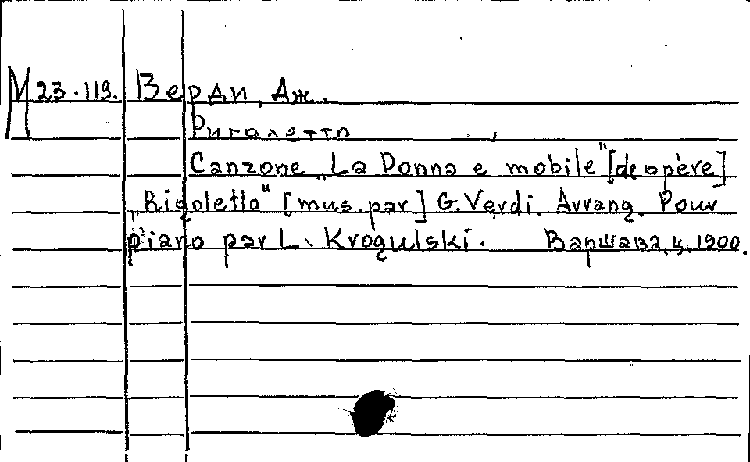 М 23-119. Верди, Дж.
Риголетто
Canzone „La Donna e mobile" [de opère]
„Rigoletto" [mus. par] G. Verdi. Arrang. Pour
piano par L. Krogulski. Варшава, ц. 1900.